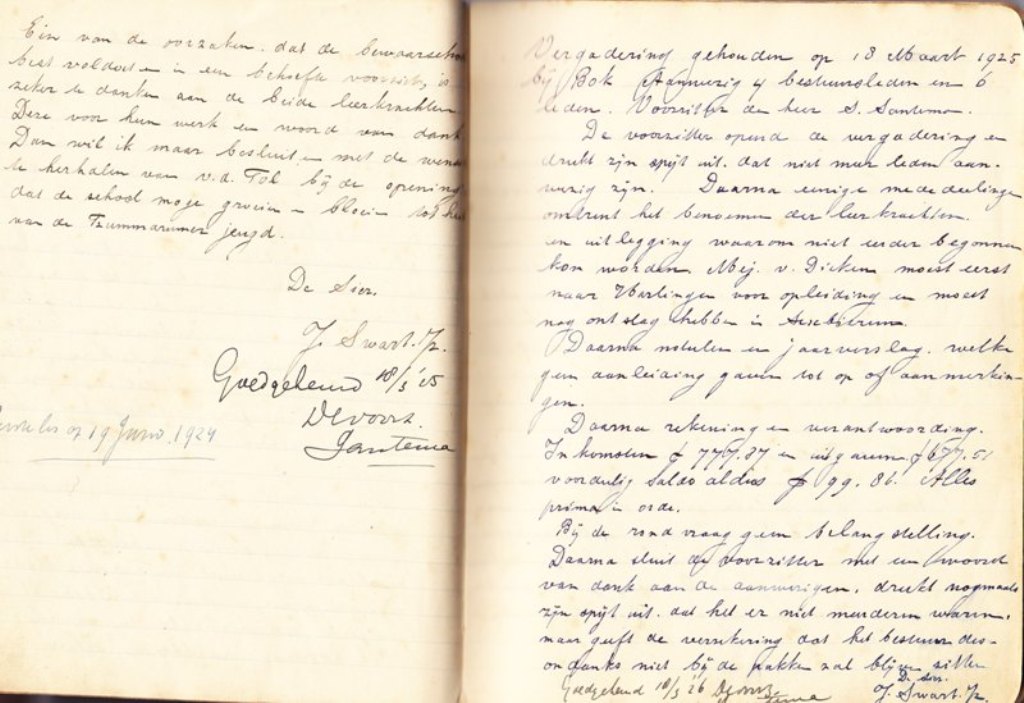 Een van de oorzaken. dat de bewaarschool
best voldoet en in een behoefte voorziet, is
zeker te danken aan de beide leerkrachten
Deze voor hun werk en woord van dank.
Dan wil ik maar besluiten met de wensch
te herhalen van v.d. Tol bij de opening
dat de school moge groeien en bloeien tot heil
van de Tzummarumer jeugd.
De Secr.
J. Swart. Jz.
Goedgekeurd 18/3 '25
De voorz.
Santema
op 19 Juni 1924
Vergadering gehouden op 18 Maart 1925
bij Bok Aanwezig 4 bestuursleden en 6
leden. Voorzitter de heer S. Santema.
De voorzitter opend de vergadering en
drukt zijn spijt uit. dat niet meer leden aan-
wezig zijn. Daarna eenige mededeelingen
omtrent het benoemen der leerkrachten.
en uitlegging waarom niet eerder begonnen
kon worden Mej. v. Dicken moest eerst
naar Harlingen voor opleiding en moest
nog ontslag hebben in Sexbierum.
Daarna notulen en jaarverslag. welke
geen aanleiding gaven tot op of aanmerkin-
gen.
Daarna rekening en verantwoording.
Inkomsten ƒ 777.37 en uitgaven ƒ 677.51
voordelig saldo aldus ƒ 99.86. Alles
prima in orde.
Bij de rondvraag geen belangstelling.
Daarna sluit de voorzitter met een woord
van dank aan de aanwezigen, drukt nogmaals
zijn spijt uit. dat het er niet meerderen waren.
maar geeft de verzekering dat het bestuur des-
ondanks niet bij de pakken zal blijven zitten
De secr.
Goedgekeurd 18/3 '26 De voorz.
J. Swart. Jz.